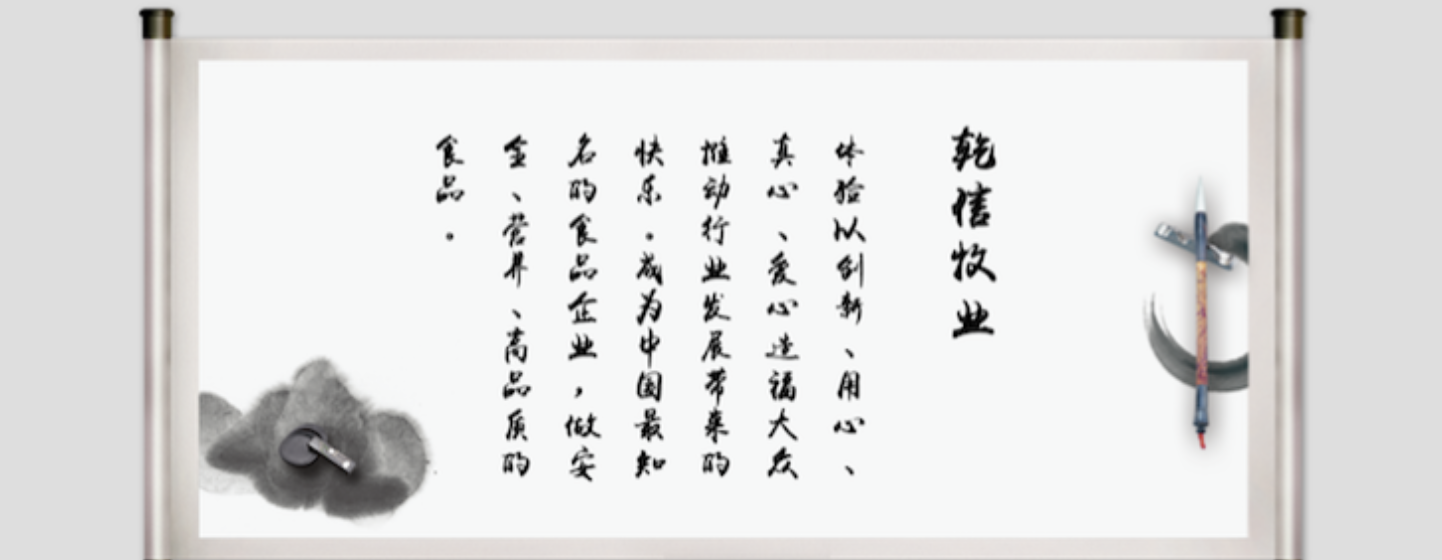 乾信牧业
体验以创新、用心、
真心、爱心造福大众
推动行业发展带来的
快乐。成为中国最知
名的食品企业，做安
全、营养、高品质的
食品。